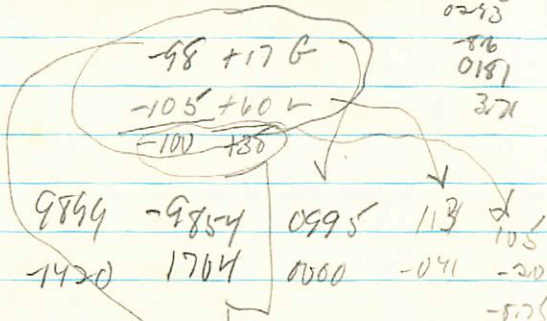 0293
-86
-98 +17 G
0181
-105 +60 L
-100 +30
9899 -9854 0995 113 105
-1420 1704 0000 -041 -20